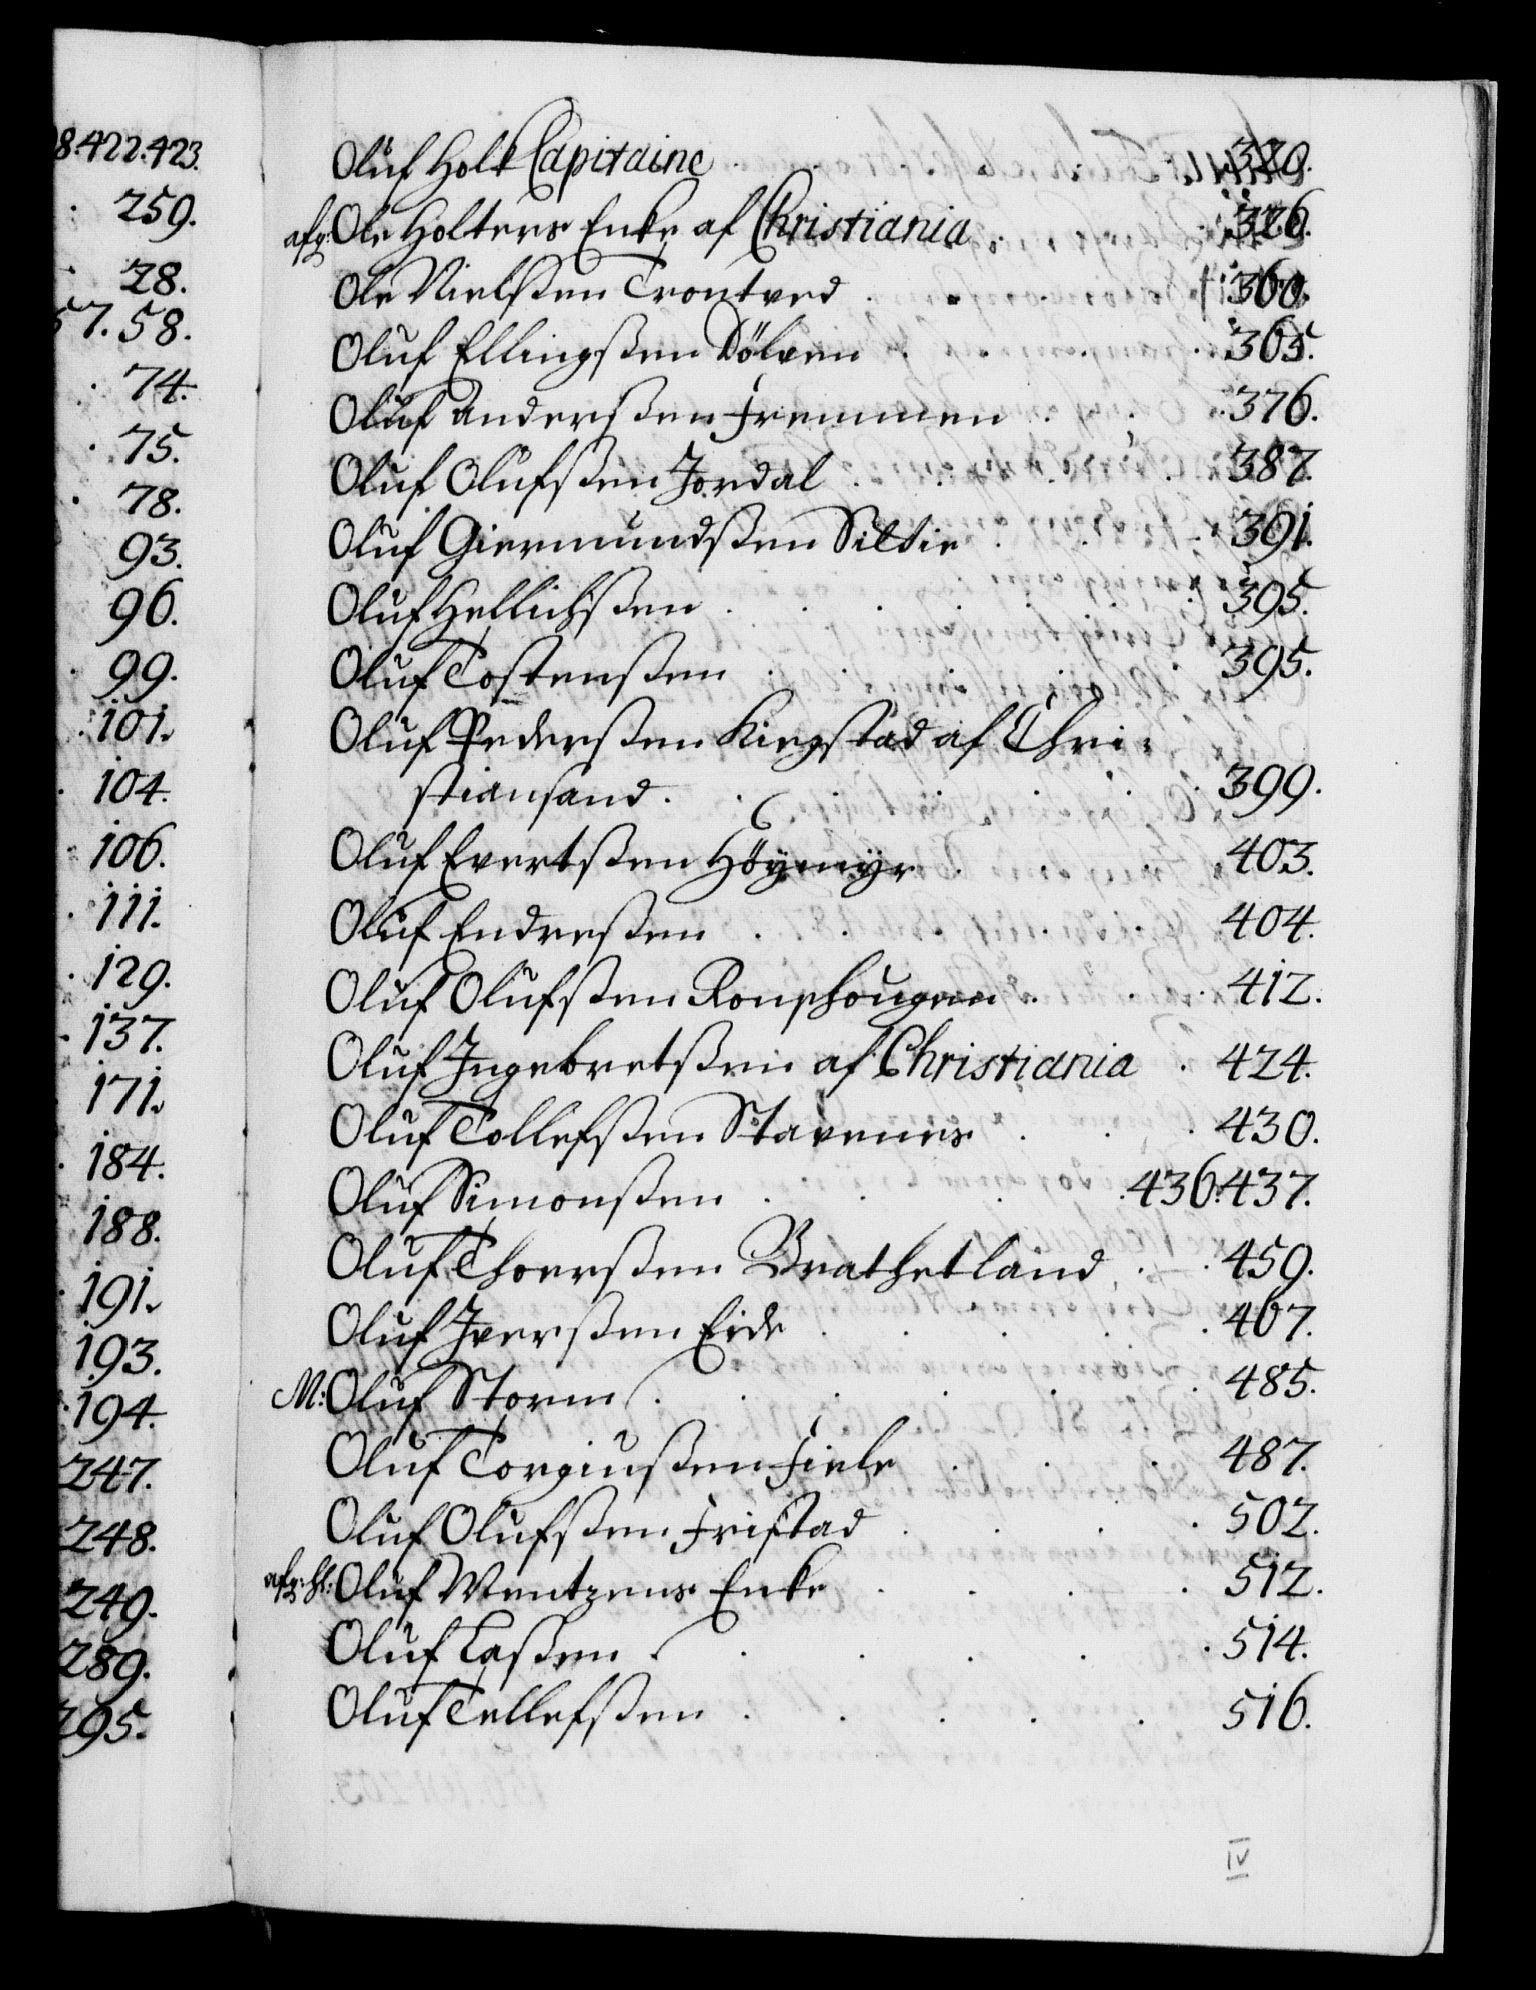 8.422.423.
259.
28.
57. 58.
74.
75.
78.
93.
96.
99.
101.
104.
106.
111.
129.
137.
171.
184.
188.
191.
193.
194.
247.
248.
249.
289.
295.
Oluf Holk Capitaine 320.
afg: Ole Holters Enke af Christiania 326.
Ole Nielsßen Trontved 360.
Oluf Ellingsßen Dölven 365.
Oluf Andersßen Fremmen 376.
Oluf Olufsßen Jordal 387.
Oluf Giermundsßen Siltie 391.
Oluf Hellichsßen 395.
Oluf Tostensßen 395.
Oluf Pedersßen Ringstad af Chri-
stiansand 399.
Oluf Evertsßen Höymyr 403.
Oluf Endresßen 404.
Oluf Olufsßen Ronshougen 412.
Oluf Ingebretsßen af Christiania 424.
Oluf Tollefsßen Stavenes 430.
Oluf Simonsßen 436.437.
Oluf Thoersßen Brathetland 459.
Oluf Iversßen Eide 467.
M: Oluf Storm 485.
Oluf Torgiusßen Fiele 487.
Oluf Olufsßen Fristad 502.
afg: Hr: Oluf Wentzens Enke 512.
Oluf Laßen 514.
Oluf Tellefsßen 516.
IV